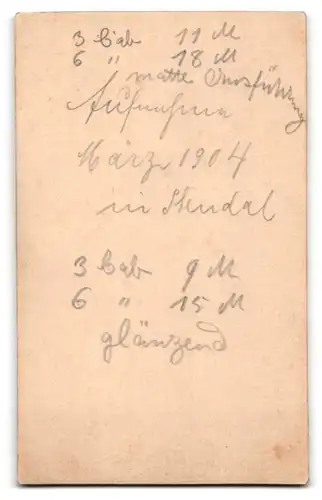 3 Cab 11 M
6 " 18 M
matte Ausführung
Aufnahme
März 1904
in Stendal
3 Cab 9 M
6 " 15 M
glänzend